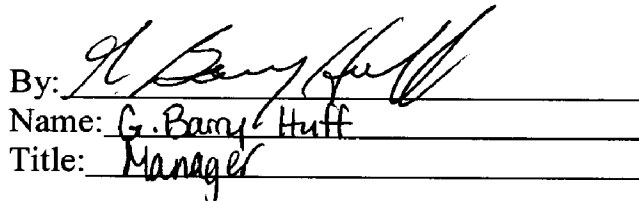 By: G. Barry Huff
Name: G. Barry Huff
Title: Manager